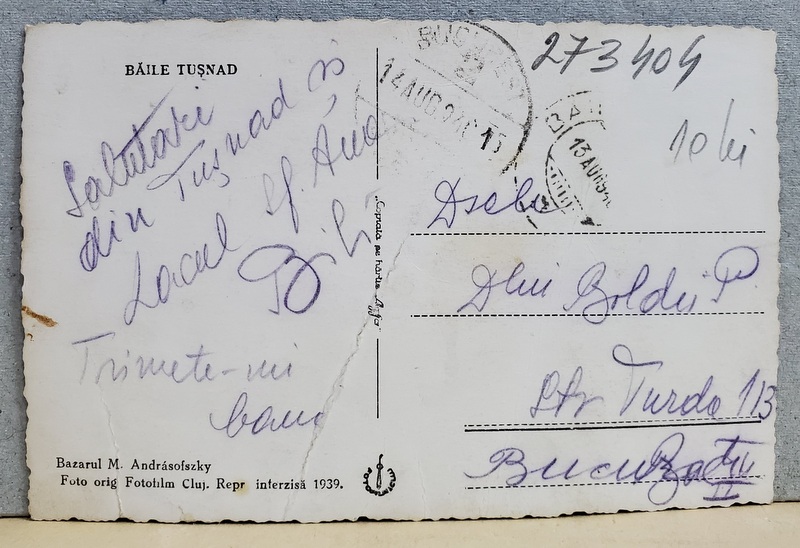 BĂILE TUȘNAD
Salutări
din Tușnad și
Lacul Sf. Ana
Trimete-mi
bani
Bazarul M. Andrásofszky
Foto orig Fotofilm Cluj. Repr interzisă 1939.
Copiata pe hârtie Agfa
BUCUREȘTI
14 AUG 94 15
13 AUG 94
273404
10 lei
Dsale
Dlui Boldei P.
Str Turda 113
București
II